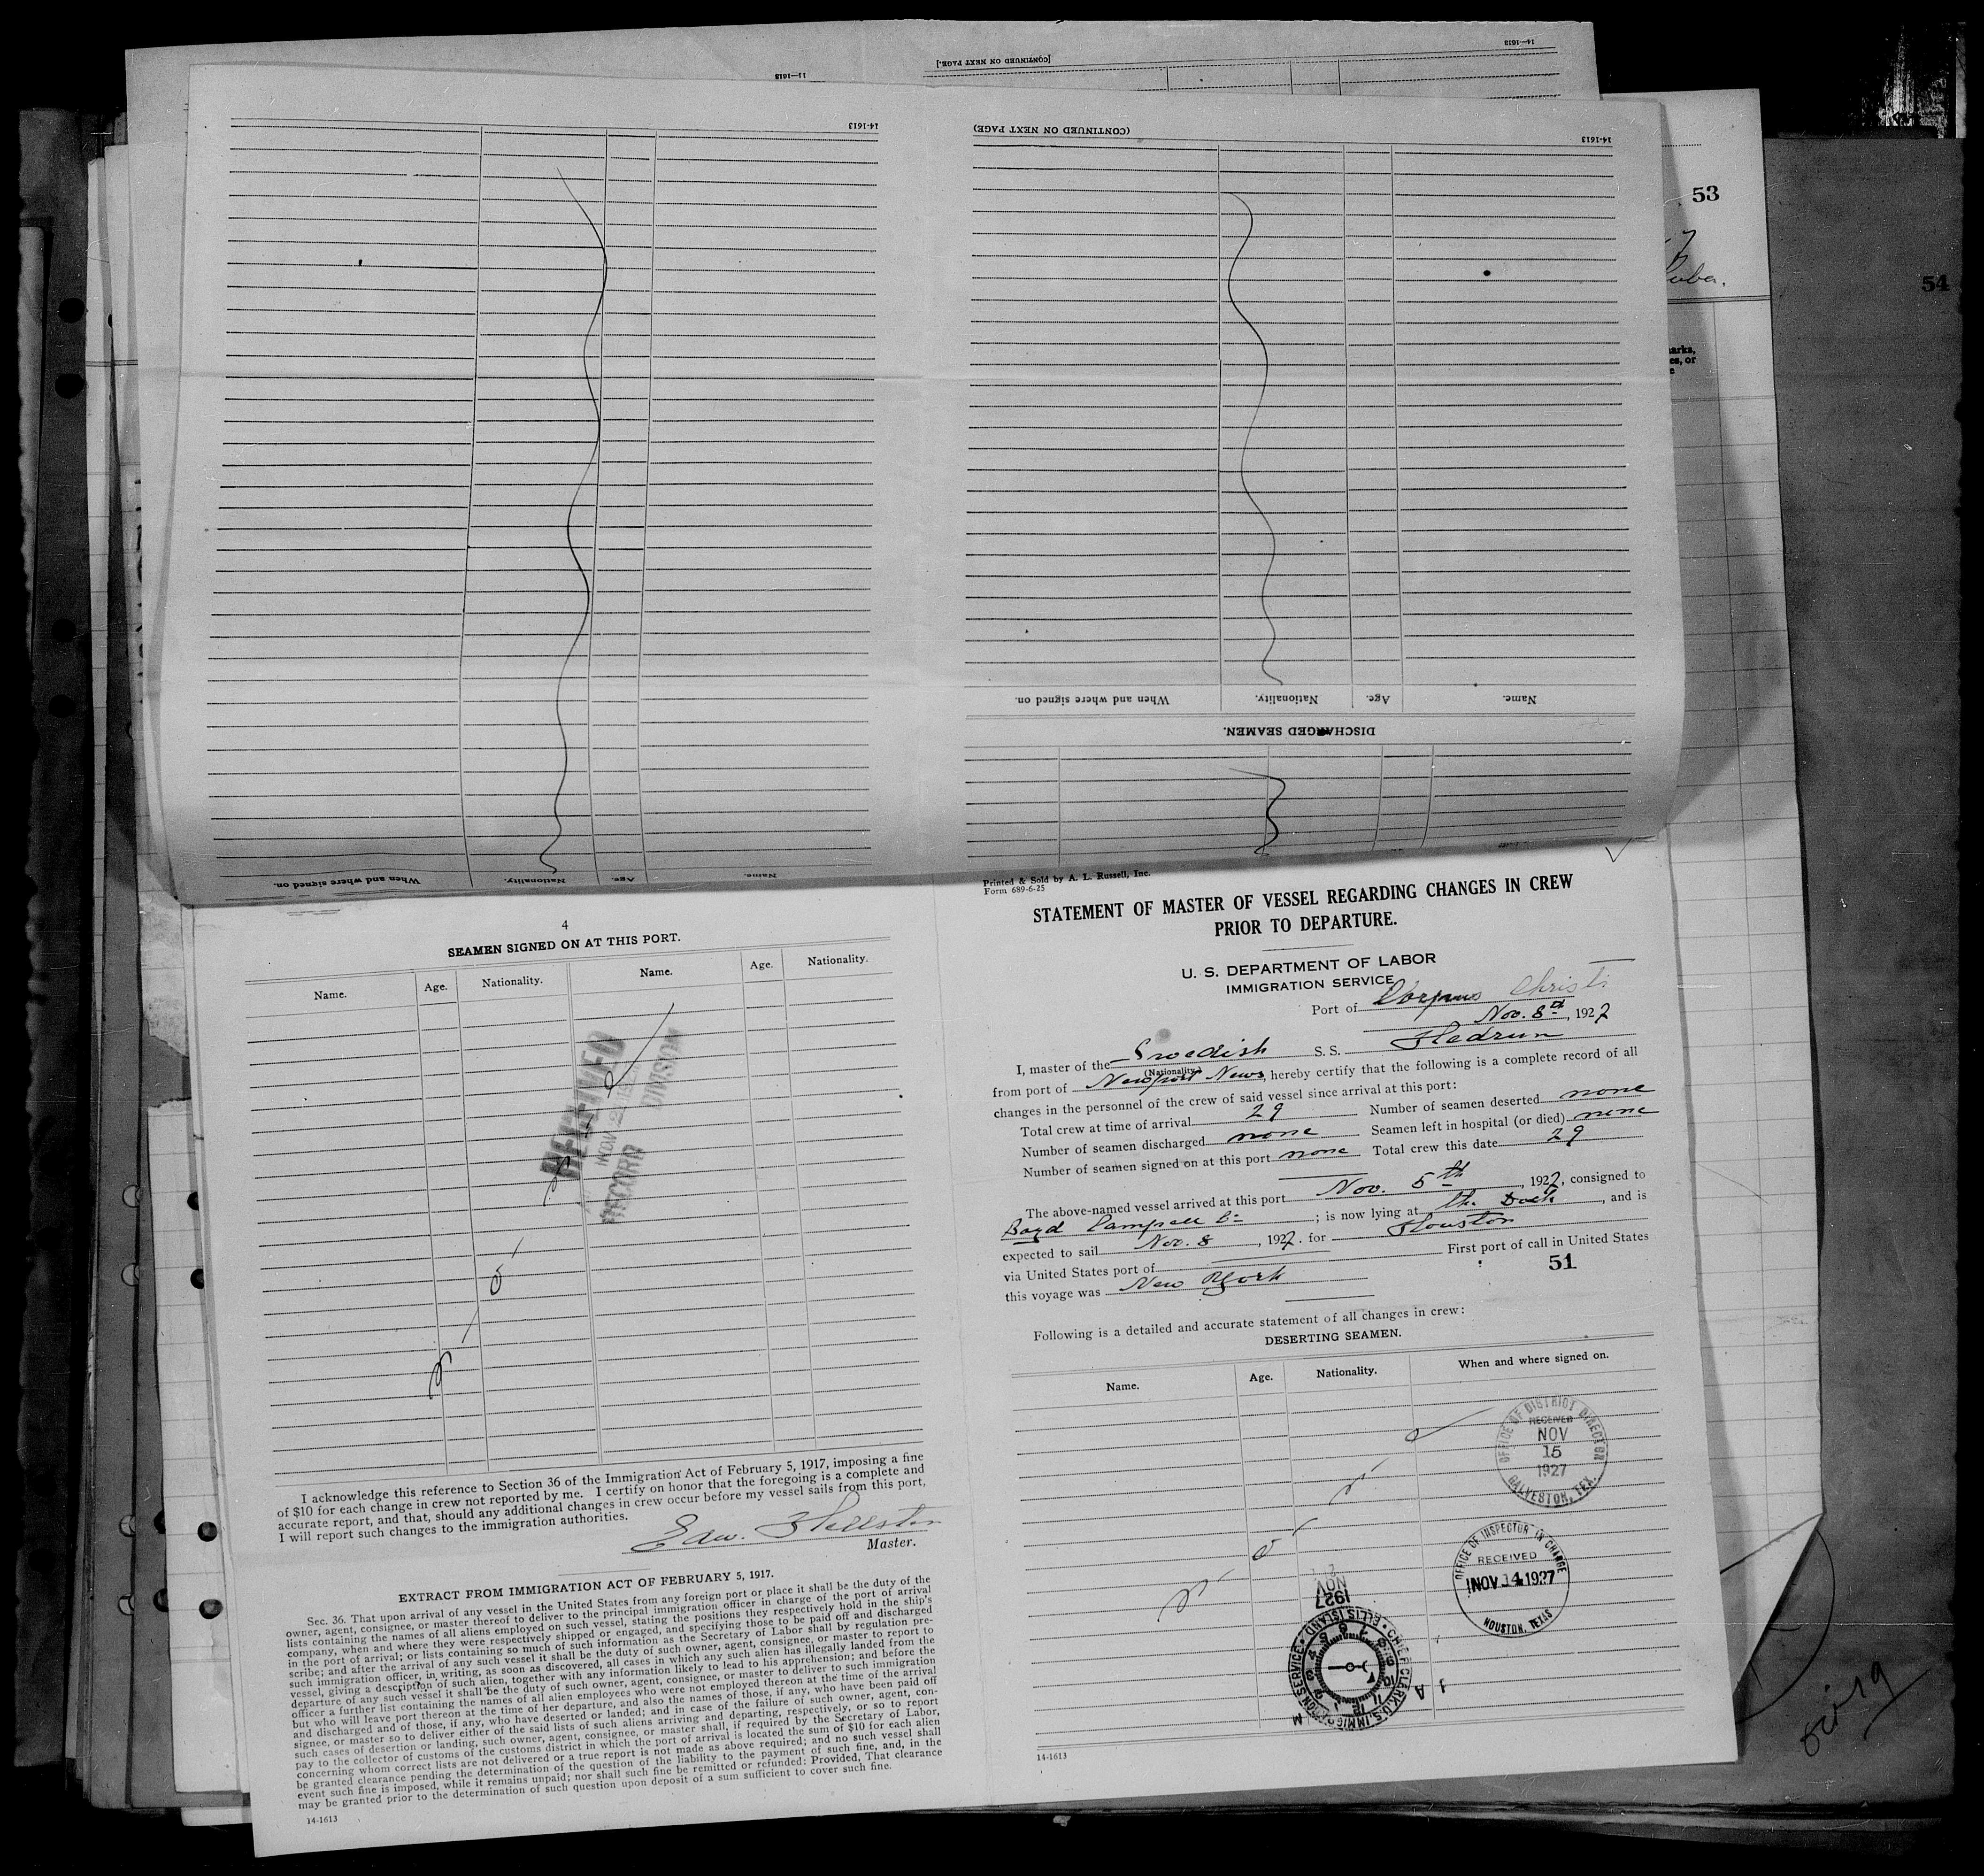 [CONTINUED ON NEXT PAGE.]
14—1613
11—1618
14-1613
(CONTINUED ON NEXT PAGE)
14-1613
53
54
arks,
es, or
e
Name. Age. Nationality. When and where signed on.
DISCHARGED SEAMEN.
Name. Age. Nationality. When and where signed on.
4
SEAMEN SIGNED ON AT THIS PORT.
Name. Age. Nationality. Name. Age. Nationality.
RECEIVED
NOV 2
RECORD DIVISION
I acknowledge this reference to Section 36 of the Immigration Act of February 5, 1917, imposing a fine
of $10 for each change in crew not reported by me. I certify on honor that the foregoing is a complete and
accurate report, and that, should any additional changes in crew occur before my vessel sails from this port,
I will report such changes to the immigration authorities.
Edw.
Master.
EXTRACT FROM IMMIGRATION ACT OF FEBRUARY 5, 1917.
Sec. 36. That upon arrival of any vessel in the United States from any foreign port or place it shall be the duty of the
owner, agent, consignee, or master thereof to deliver to the principal immigration officer in charge of the port of arrival
lists containing the names of all aliens employed on such vessel, stating the positions they respectively hold in the ship's
company, when and where they were respectively shipped or engaged, and specifying those to be paid off and discharged
in the port of arrival; or lists containing so much of such information as the Secretary of Labor shall by regulation pre-
scribe; and after the arrival of any such vessel it shall be the duty of such owner, agent, consignee, or master to report to
such immigration officer, in writing, as soon as discovered, all cases in which any such alien has illegally landed from the
vessel, giving a description of such alien, together with any information likely to lead to his apprehension; and before the
departure of any such vessel it shall be the duty of such owner, agent, consignee, or master to deliver to such immigration
officer a further list containing the names of all alien employees who were not employed thereon at the time of the arrival
but who will leave port thereon at the time of her departure, and also the names of those, if any, who have been paid off
and discharged and of those, if any, who have deserted or landed; and in case of the failure of such owner, agent, con-
signee, or master so to deliver either of the said lists of such aliens arriving and departing, respectively, or so to report
such cases of desertion or landing, such owner, agent, consignee, or master shall, if required by the Secretary of Labor,
pay to the collector of customs of the customs district in which the port of arrival is located the sum of $10 for each alien
concerning whom correct lists are not delivered or a true report is not made as above required; and no such vessel shall
be granted clearance pending the determination of the question of the liability to the payment of such fine, and, in the
event such fine is imposed, while it remains unpaid; nor shall such fine be remitted or refunded: Provided, That clearance
may be granted prior to the determination of such question upon deposit of a sum sufficient to cover such fine.
14-1613
Printed & Sold by A. L. Russell, Inc.
Form 689-6-25
STATEMENT OF MASTER OF VESSEL REGARDING CHANGES IN CREW
PRIOR TO DEPARTURE.
U. S. DEPARTMENT OF LABOR
IMMIGRATION SERVICE
Port of Corpus Christi
Nov. 8th, 1927
I, master of the Swedish S. S. Hedrun
(Nationality.)
from port of Newport News, hereby certify that the following is a complete record of all
changes in the personnel of the crew of said vessel since arrival at this port:
Total crew at time of arrival 29 Number of seamen deserted none
Number of seamen discharged none Seamen left in hospital (or died) none
Number of seamen signed on at this port none Total crew this date 29
The above-named vessel arrived at this port Nov. 5th, 1927, consigned to
Boyd Campell Co ; is now lying at the Dock, and is
expected to sail Nov. 8, 1927. for Houston
via United States port of First port of call in United States
this voyage was New York
51
Following is a detailed and accurate statement of all changes in crew:
DESERTING SEAMEN.
Name. Age. Nationality. When and where signed on.
OFFICE OF DISTRICT DIRECTOR
RECEIVED
NOV
15
1927
GALVESTON, TEX.
OFFICE OF INSPECTOR IN CHARGE
RECEIVED
NOV 14 1927
HOUSTON, TEXAS
NOV
1927
CHIEF CLERK, U.S. IMMIGRATION SERVICE • (ELLIS ISLAND)
14-1613